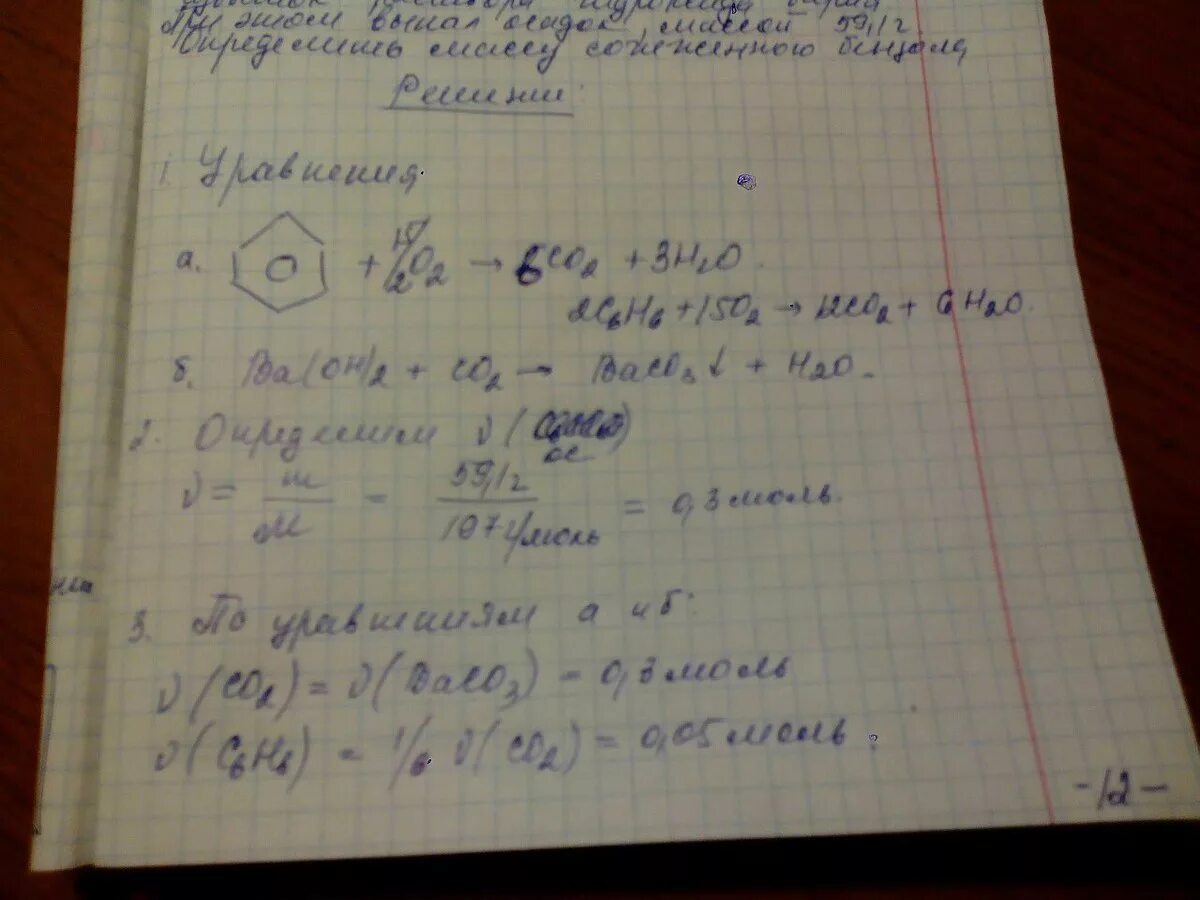 раствора гидроксида бария
При этом выпал осадок, массой 59,1 г
Определить массу сожженного бензола
Решение:
1. Уравнения
а. + 15/2 O2 → 6CO2 + 3H2O.
2C6H6 + 15O2 → 12CO2 + 6H2O.
б. Ba(OH)2 + CO2 → BaCO3↓ + H2O.
2. Определим ν(ос)
ν = m/M = 59,1г/197г/моль = 0,3 моль.
3. По уравнениям а и б:
ν(CO2) = ν(BaCO3) = 0,3 моль
ν(C6H6) = 1/6 ν(CO2) = 0,05 моль
-12-